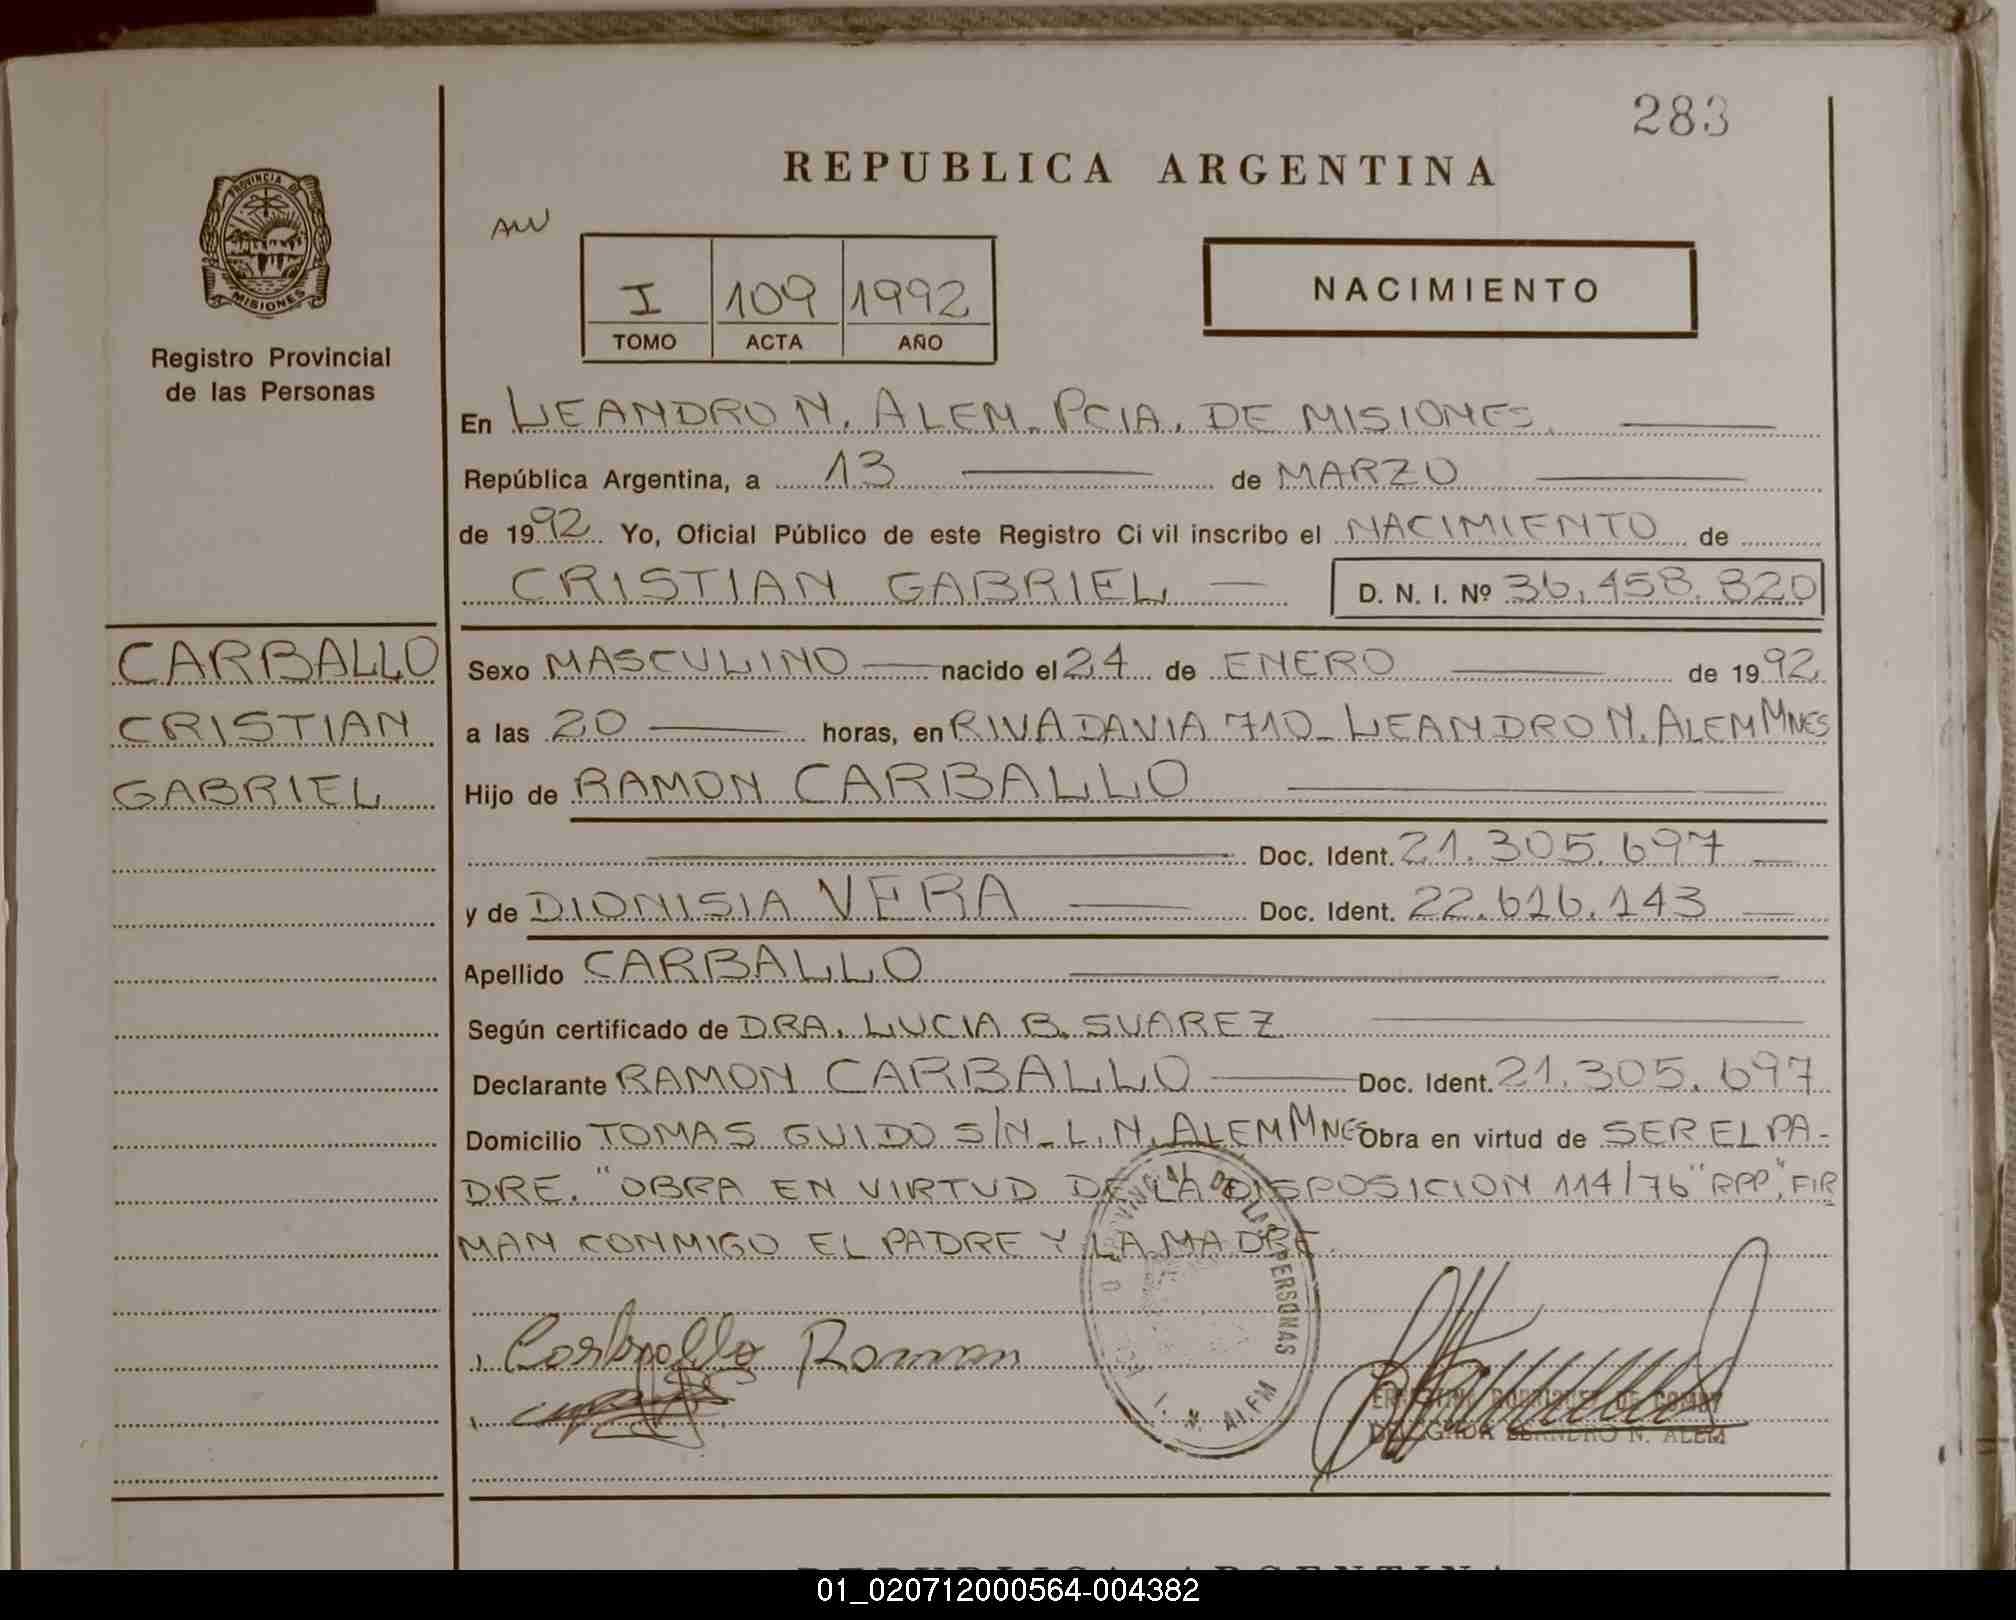 283
REPUBLICA ARGENTINA
PROVINCIA DE
MISIONES
Registro Provincial
de las Personas
AW
I 109 1992
TOMO ACTA AÑO
NACIMIENTO
En LEANDRO N. ALEM. PCIA. DE MISIONES.
República Argentina, a 13 de MARZO
de 1992 Yo, Oficial Público de este Registro Ci vil inscribo el NACIMIENTO de
CRISTIAN GABRIEL D. N. I. Nº 36.458.820
CARBALLO
CRISTIAN
GABRIEL
Sexo MASCULINO nacido el 24 de ENERO de 1992
a las 20 horas, en RIVADAVIA 710_ LEANDRO N. ALEM MNES
Hijo de RAMON CARBALLO
Doc. Ident. 21.305.697
y de DIONISIA VERA Doc. Ident. 22.616.143
Apellido CARBALLO
Según certificado de DRA. LUCIA B. SUAREZ
Declarante RAMON CARBALLO Doc. Ident. 21.305.697
Domicilio TOMAS GUIDO S/N_ L.N. ALEM MNES Obra en virtud de SER EL PA-
DRE. "OBRA EN VIRTUD DE LA DISPOSICION 114/76 "RPP", FIR
MAN CONMIGO EL PADRE Y LA MADRE.
Carballo Ramon
DE LAS PERSONAS
ALEM
RODRIGUEZ DE
DELEGADA LEANDRO N. ALEM
REPUBLICA ARGENTINA
01_020712000564-004382